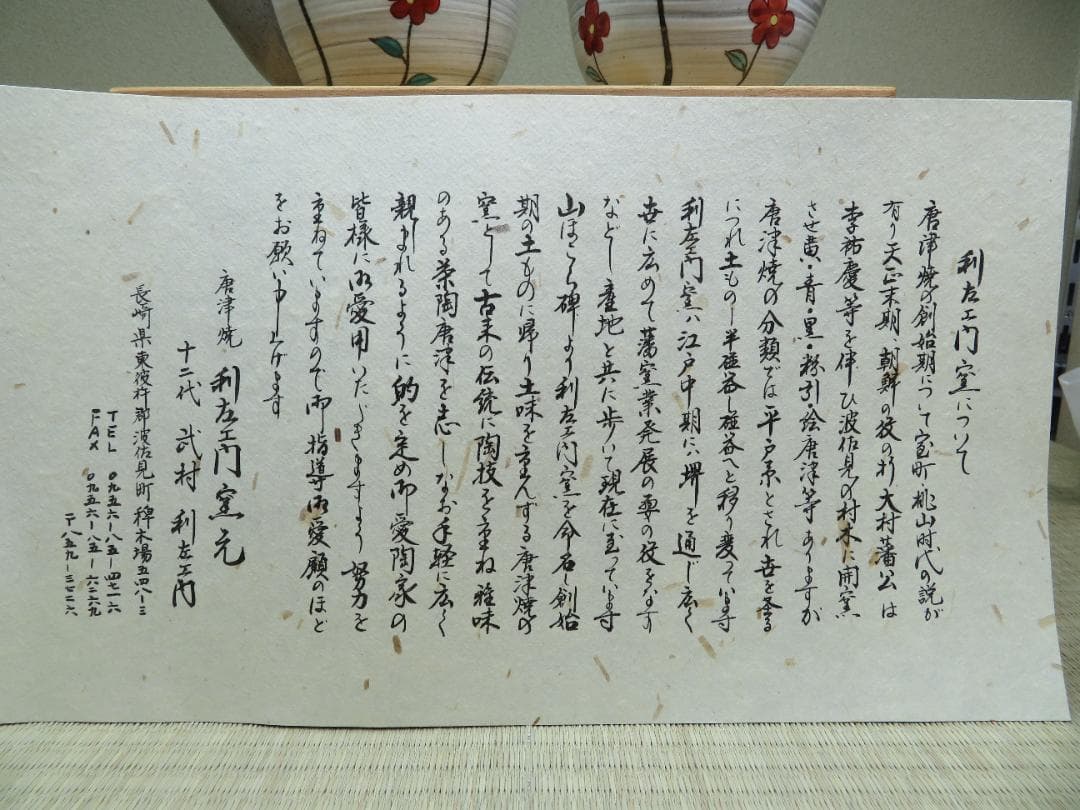 利左エ門窯について
唐津焼の創始期について室町桃山時代の説が
有り天正末期、朝鮮の役の折大村藩公は
李祐慶等を伴ひ波佐見の村木に開窯
させ黄・青・黒・粉引・絵唐津等ありますが
唐津焼の分類では平戸系とされ世を
につれ土もの―半磁器―磁器へと移り変っています
利左エ門窯ハ江戸中期にハ堺を通じ広く
世に広めて藩窯業発展の一翼の役をなす
などし産地と共に歩いて現在に至っています
山ほこら碑より利左エ門窯を命名し創始
期の土ものに帰り土味を重んずる唐津焼の
窯として古来の伝統に陶技を重ね雅味
のある茶陶唐津を志しなお手軽に広く
親しまれるように的を定め御愛陶家の
皆様に御愛用いただきますよう努力を
重ねていますので御指導御愛顧のほど
をお願い申し上げます
唐津焼 利左エ門窯元
十二代 武村 利左エ門
長崎県東彼杵郡波佐見町稗木場五四八―三
TEL 〇九五六―八五―四七一六
FAX 〇九五六―八五―六二六九
〒八五九―三七二六